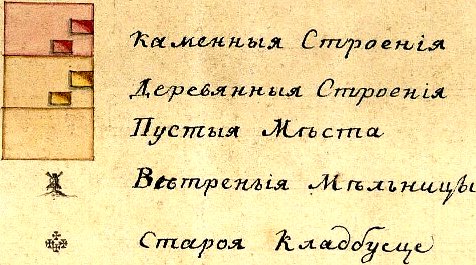 каменныя Строенія
Деревянныя Строенія
Пустыя Мѣста
Вѣтреныя Мѣльницы
Староя Кладбусце